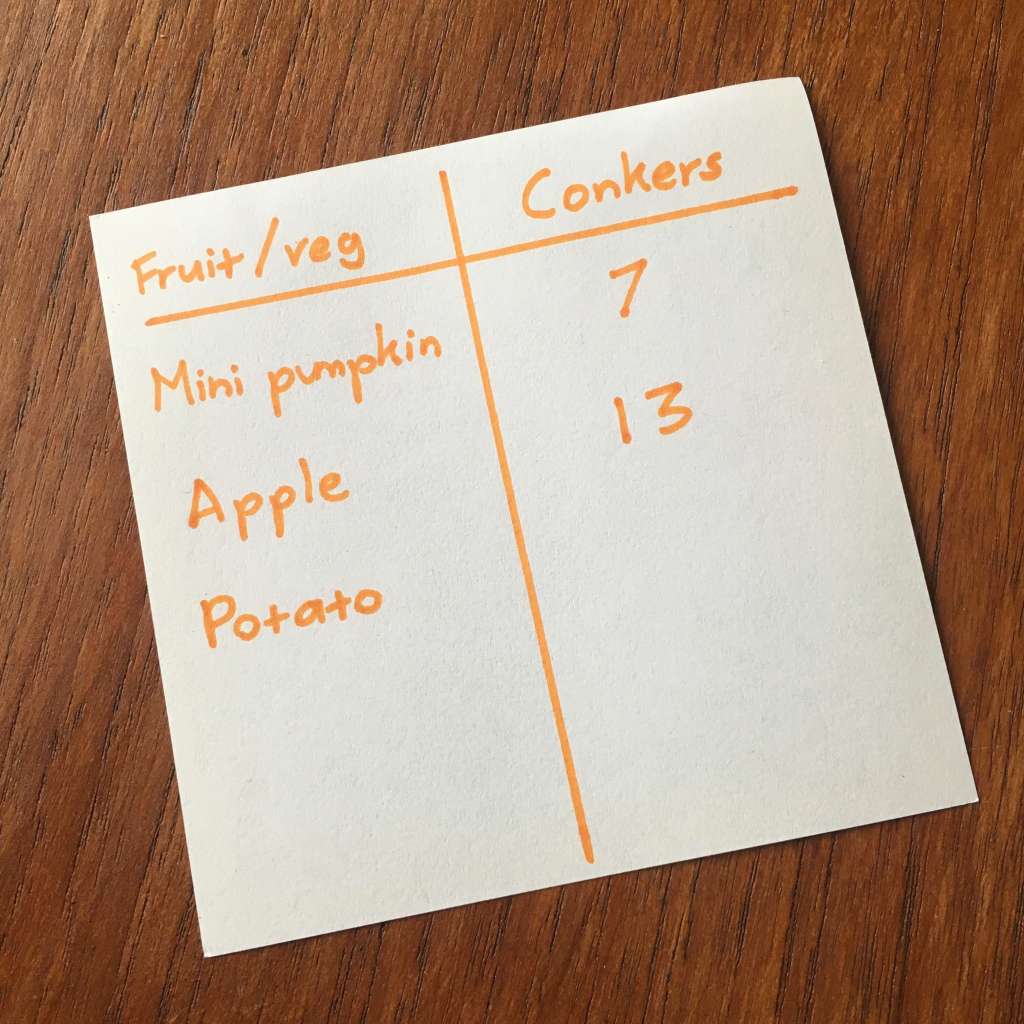 Fruit/veg Conkers
Mini pumpkin 7
Apple 13
Potato